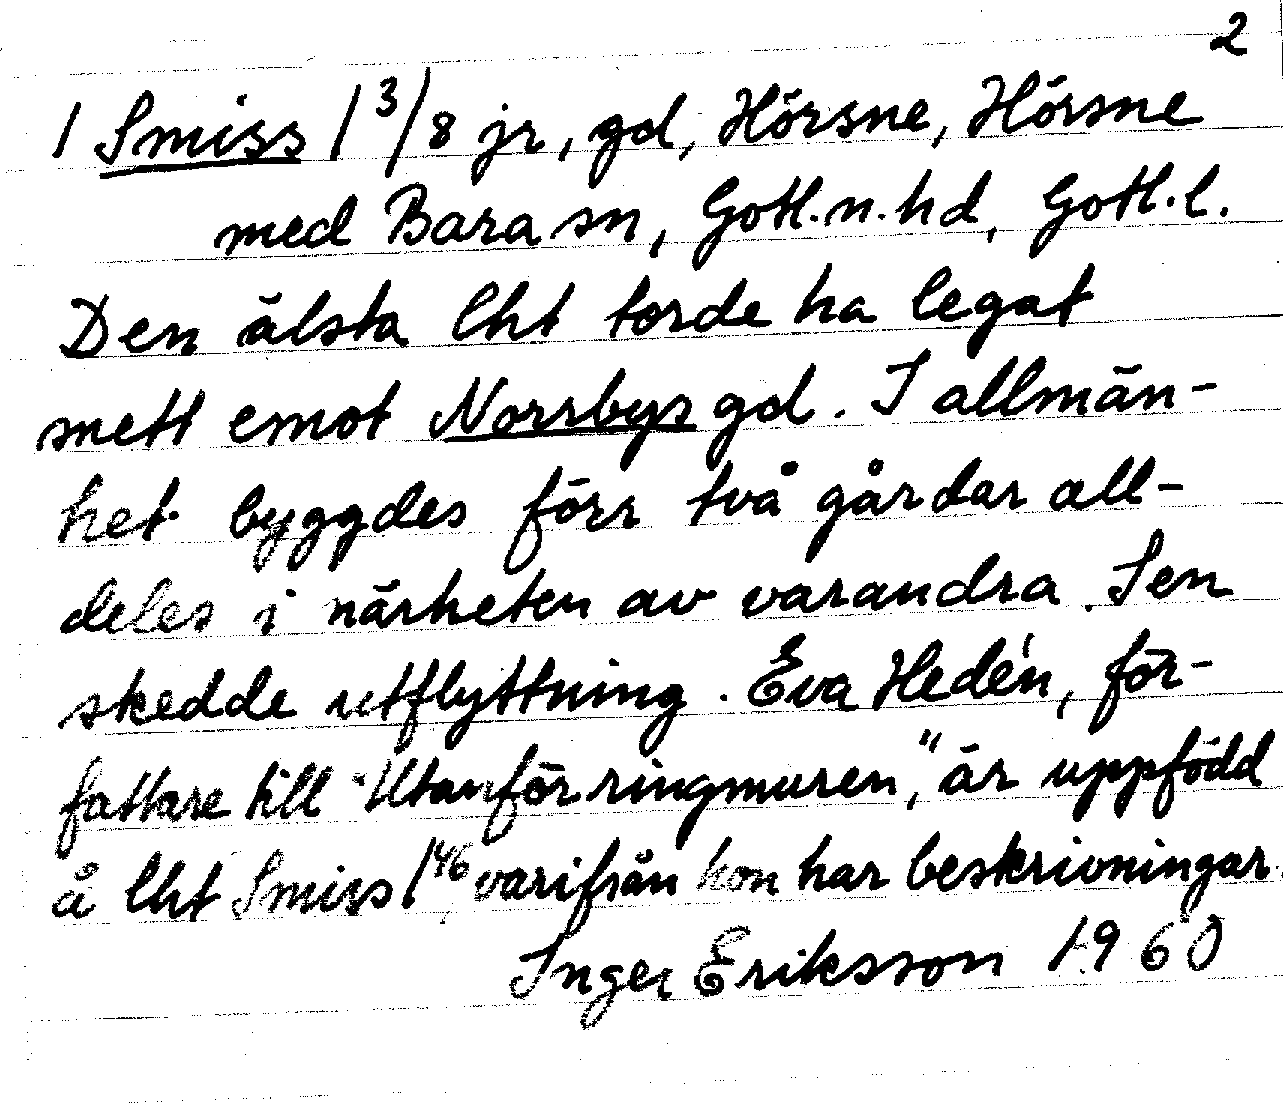 2
1 Smiss 1 3/8 jr, gd, Hörsne, Hörsne
med Bara sn, Gotl.n.hd, Gotl.l.
Den älsta lht torde ha legat
mett emot Norrbys gd. I allmän-
het byggdes förr två gårdar all-
deles i närheten av varandra. Sen
skedde utflyttning. Eva Hedén, för-
fattare till "Utanför ringmuren," är uppfödd
å lht Smiss 1 46, varifrån hon har beskrivningar.
Inger Eriksson 1960